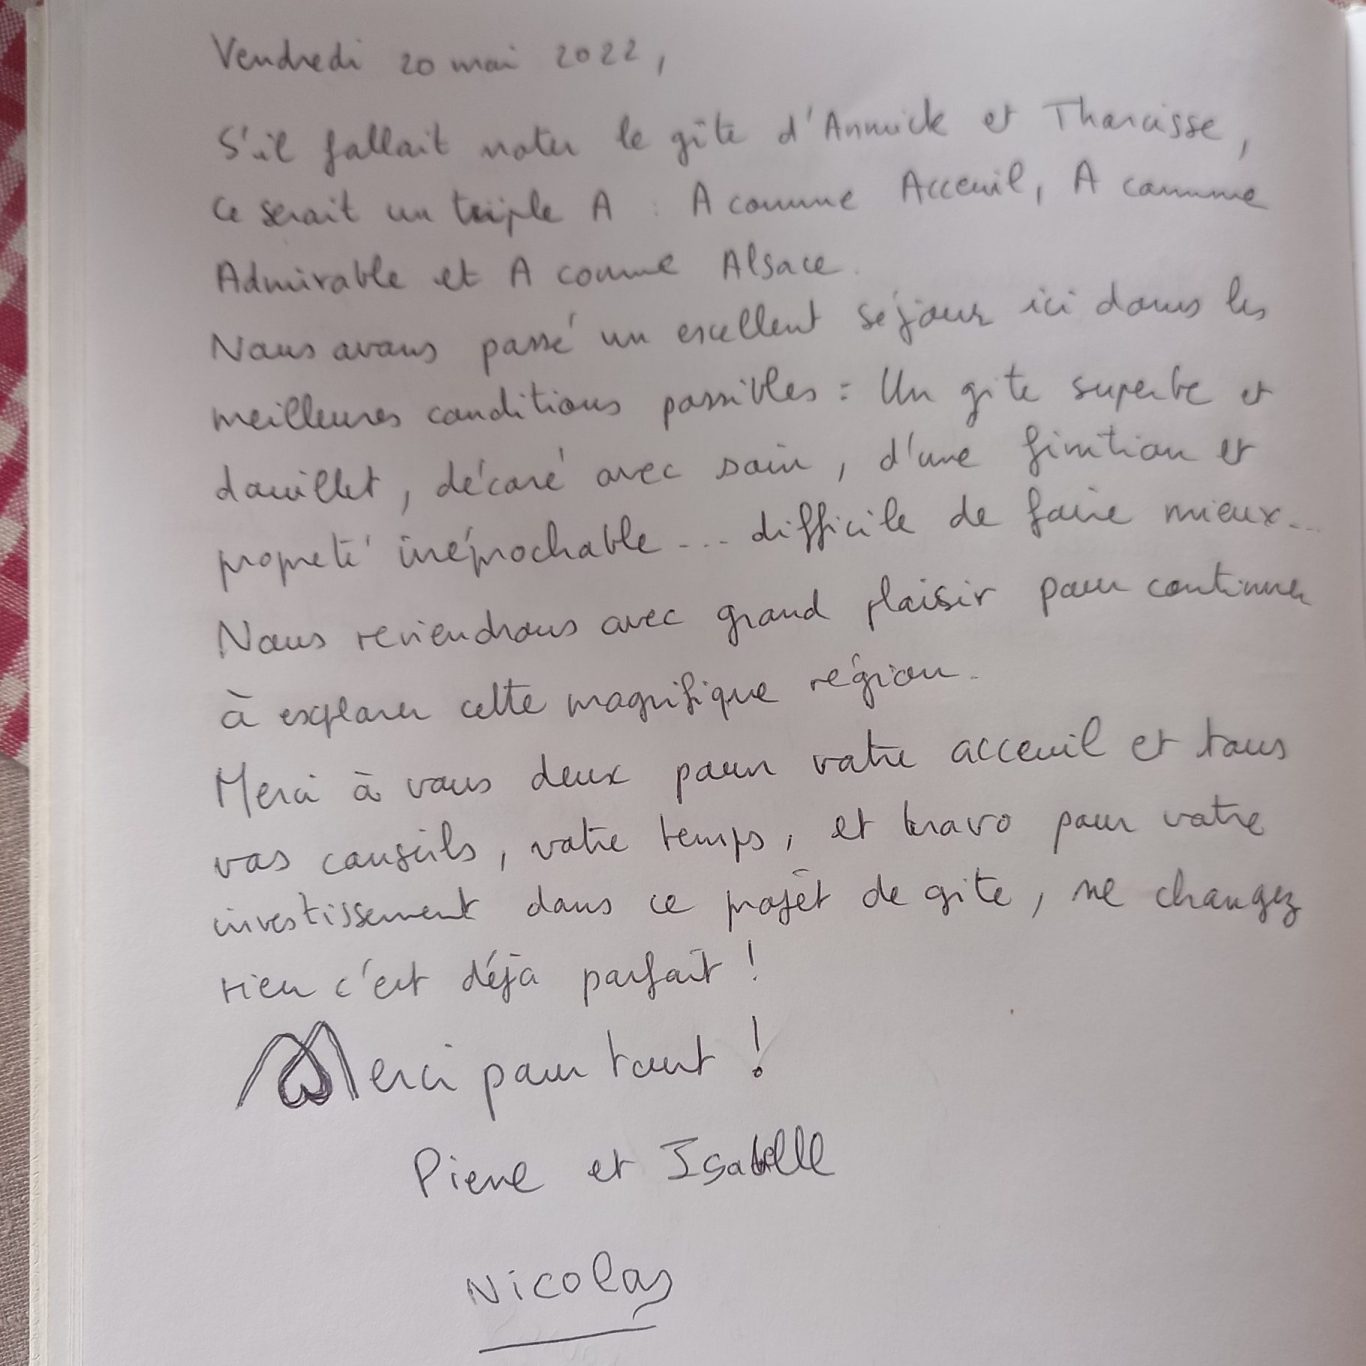 Vendredi 20 mai 2022,
S'il fallait noter le gîte d'Annick et Tharcisse,
ce serait un triple A : A comme Acceuil, A comme
Admirable et A comme Alsace.
Nous avons passé un excellent séjour ici dans les
meilleures conditions possibles : Un gite superbe et
douillet, décoré avec soin, d'une finition et
propreté iréprochable... difficile de faire mieux...
Nous reviendrons avec grand plaisir pour continuer
à explorer cette magnifique région.
Merci à vous deux pour votre acceuil et tous
vos conseils, votre temps, et bravo pour votre
investissement dans ce projet de gite, ne changez
rien c'est déjà parfait !
Merci pour tout !
Pierre et Isabelle
Nicolas